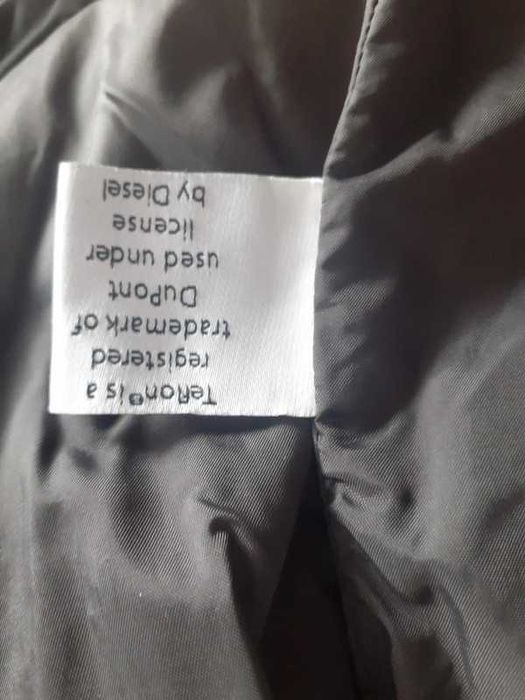 Teflon® is a
registered
trademark of
DuPont
used under
license
by Diesel